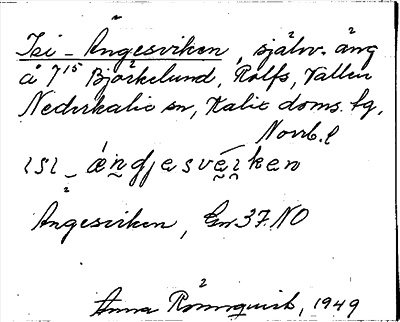 Isi-Ängesviken, självv. äng
å 7¹⁵ Björkelund, Rolfs, Vallen
Nederkalix sn, Kalix doms. tg.
Norrb. l
ısı_ ándjesvéi̯ken
Ängesviken, Gn 37. NO
Anna Rönnquist, 1949